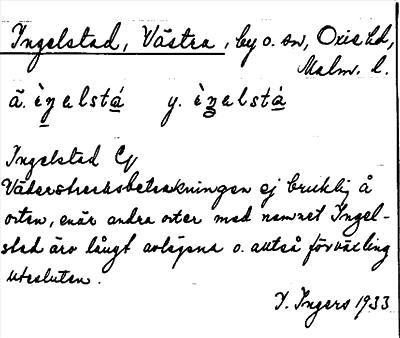 Ingelstad, Västra, by o. sn, Oxie hd,
Malm. l.
ä. èŋəlstá y. èŋəlstá
Ingelstad
Väderstrecksbeteckningen ej bruklig å
orten, enär andra orter med namnet Ingel-
stad äro långt avlägsna o. alltså förväxling
utesluten.
I. Ingers 1933